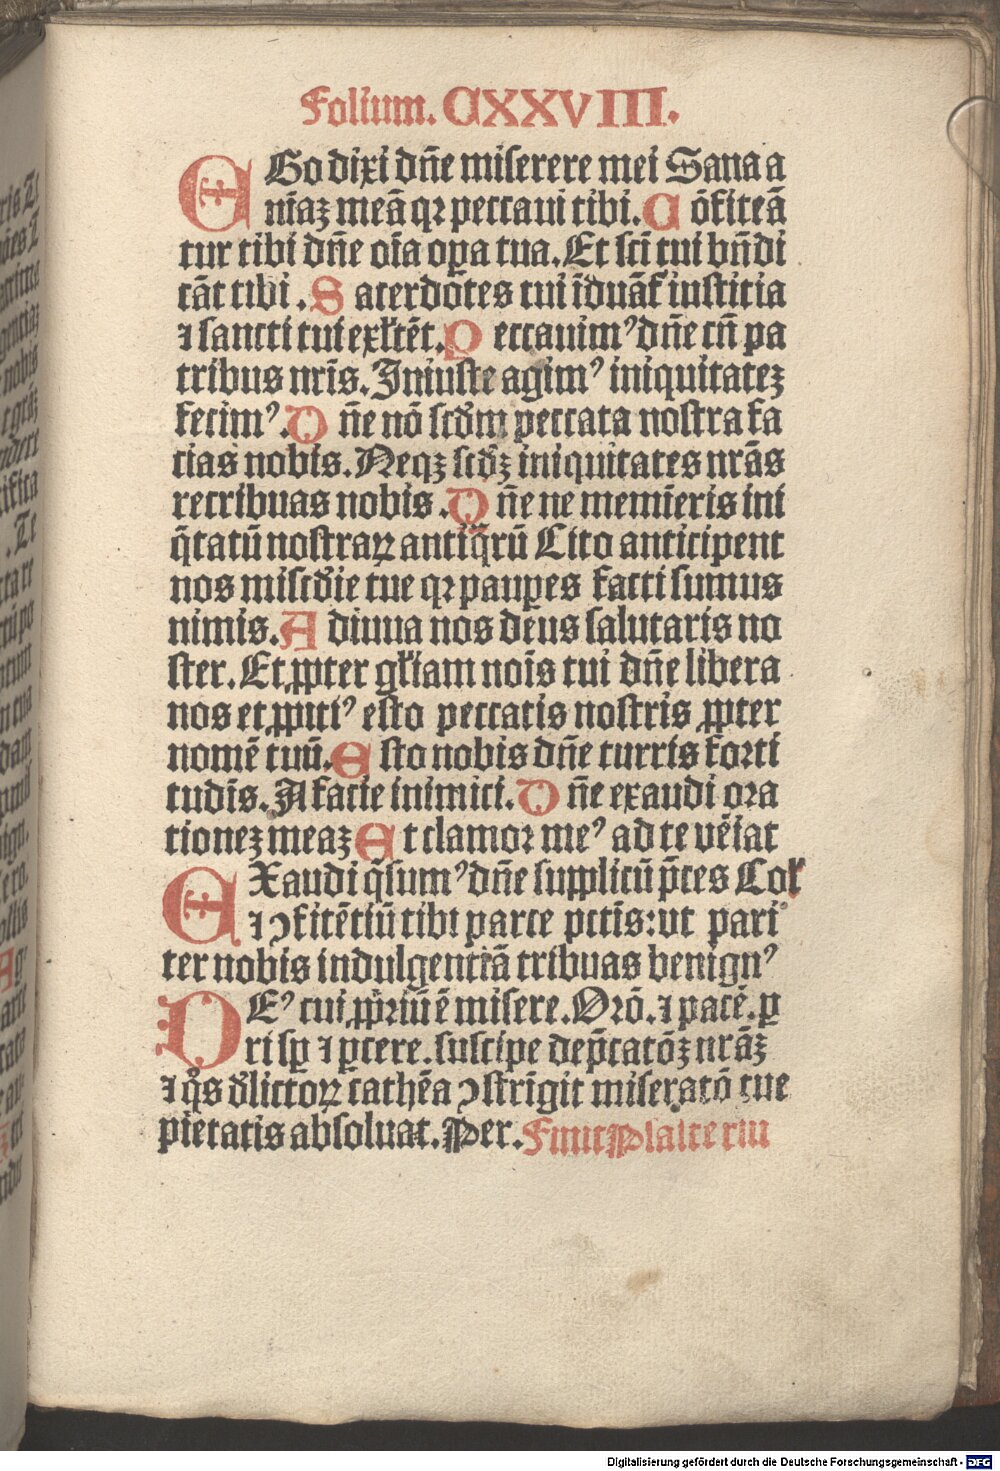 Folium. CXXVIII.
EGo dixi dn̄e miserere mei Sana a
nīaꝫ meā qꝛ peccaui tibi. C ōfiteā
tur tibi dn̄e oīa oꝑa tua. Et scī tui bn̄di
cāt tibi. S acerdōtes tui īduāt iusticia
⁊ sancti tui exłtēt. P eccauimꝰ dn̄e cū pa
tribus nrīs. Iniuste agimꝰ iniquitateꝫ
fecimꝰ. D n̄e nō scďm peccata nostra fa
cias nobis. Neqꝫ scďꝫ iniquitates nrās
retribuas nobis. D n̄e ne memīeris ini
q̄tatū nostraꝝ antiq̄rū Cito anticipent
nos miscďie tue qꝛ pauꝑes facti sumus
nimis. A diuua nos deus salutaris no
ster. Et ꝓpter głiam noīs tui dn̄e libera
nos et ꝓpitiꝰ esto peccatis nostris ꝓpter
nomē tuū. E sto nobis dn̄e turris forti
tudīs. A facie inimici. D n̄e exaudi ora
tioneꝫ meaꝫ E t clamor meꝰ ad te vēiat
EXaudi q̄sumꝰ dn̄e supplicū p̄ces Coł
⁊ ꝯfitētiū tibi parce pctīs: ut pari
ter nobis indulgentiā tribuas benignꝰ
DEꝰ cui ꝓpriū ē misere. Orō. ⁊ pacē. ꝑ
ri sꝑ ⁊ ꝑcere. suscipe dep̄catōꝫ nrāꝫ
⁊ qͦs ďlictoꝝ cathēa ꝯstrīgit miseratō tue
pietatis absoluat. Per. Finit Psalteriū
Digitalisierung gefördert durch die Deutsche Forschungsgemeinschaft - DFG